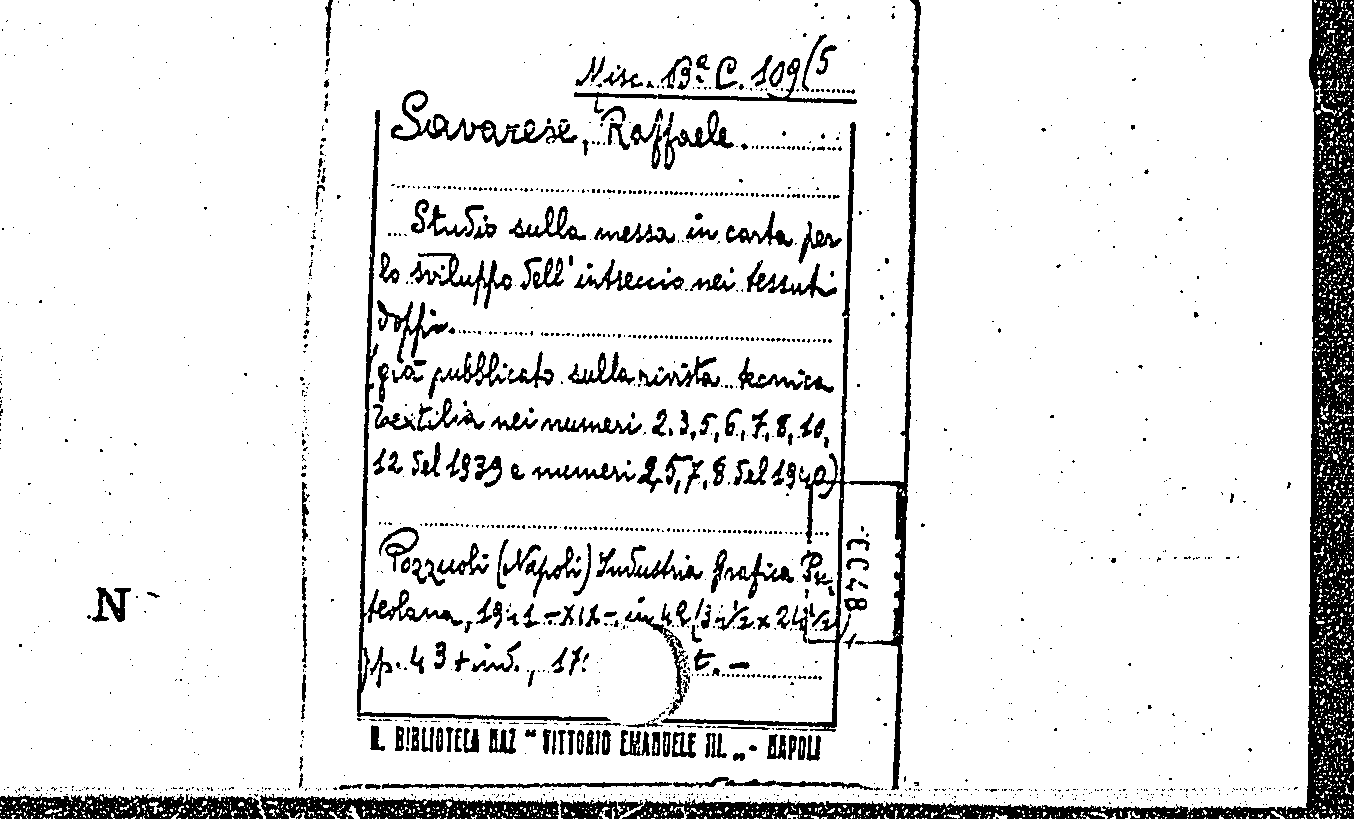 Misc. Bª C. 109(5
Savarese, Raffaele.
Studio sulla messa in carta per
lo sviluppo dell'intreccio nei tessuti
doppi.
(già pubblicato sulla rivista tecnica
Textilia nei numeri 2,3,5,6,7,8,10,
12 del 1939 e numeri 2,5,7,8 del 1940)
Pozzuoli (Napoli) Industria Grafica Pu-
teolana, 1941 -XIX- in 4º
p. 43 + ind., t. -
R. BIBLIOTECA NAZ " VITTORIO EMANUELE III. „ - NAPOLI
N